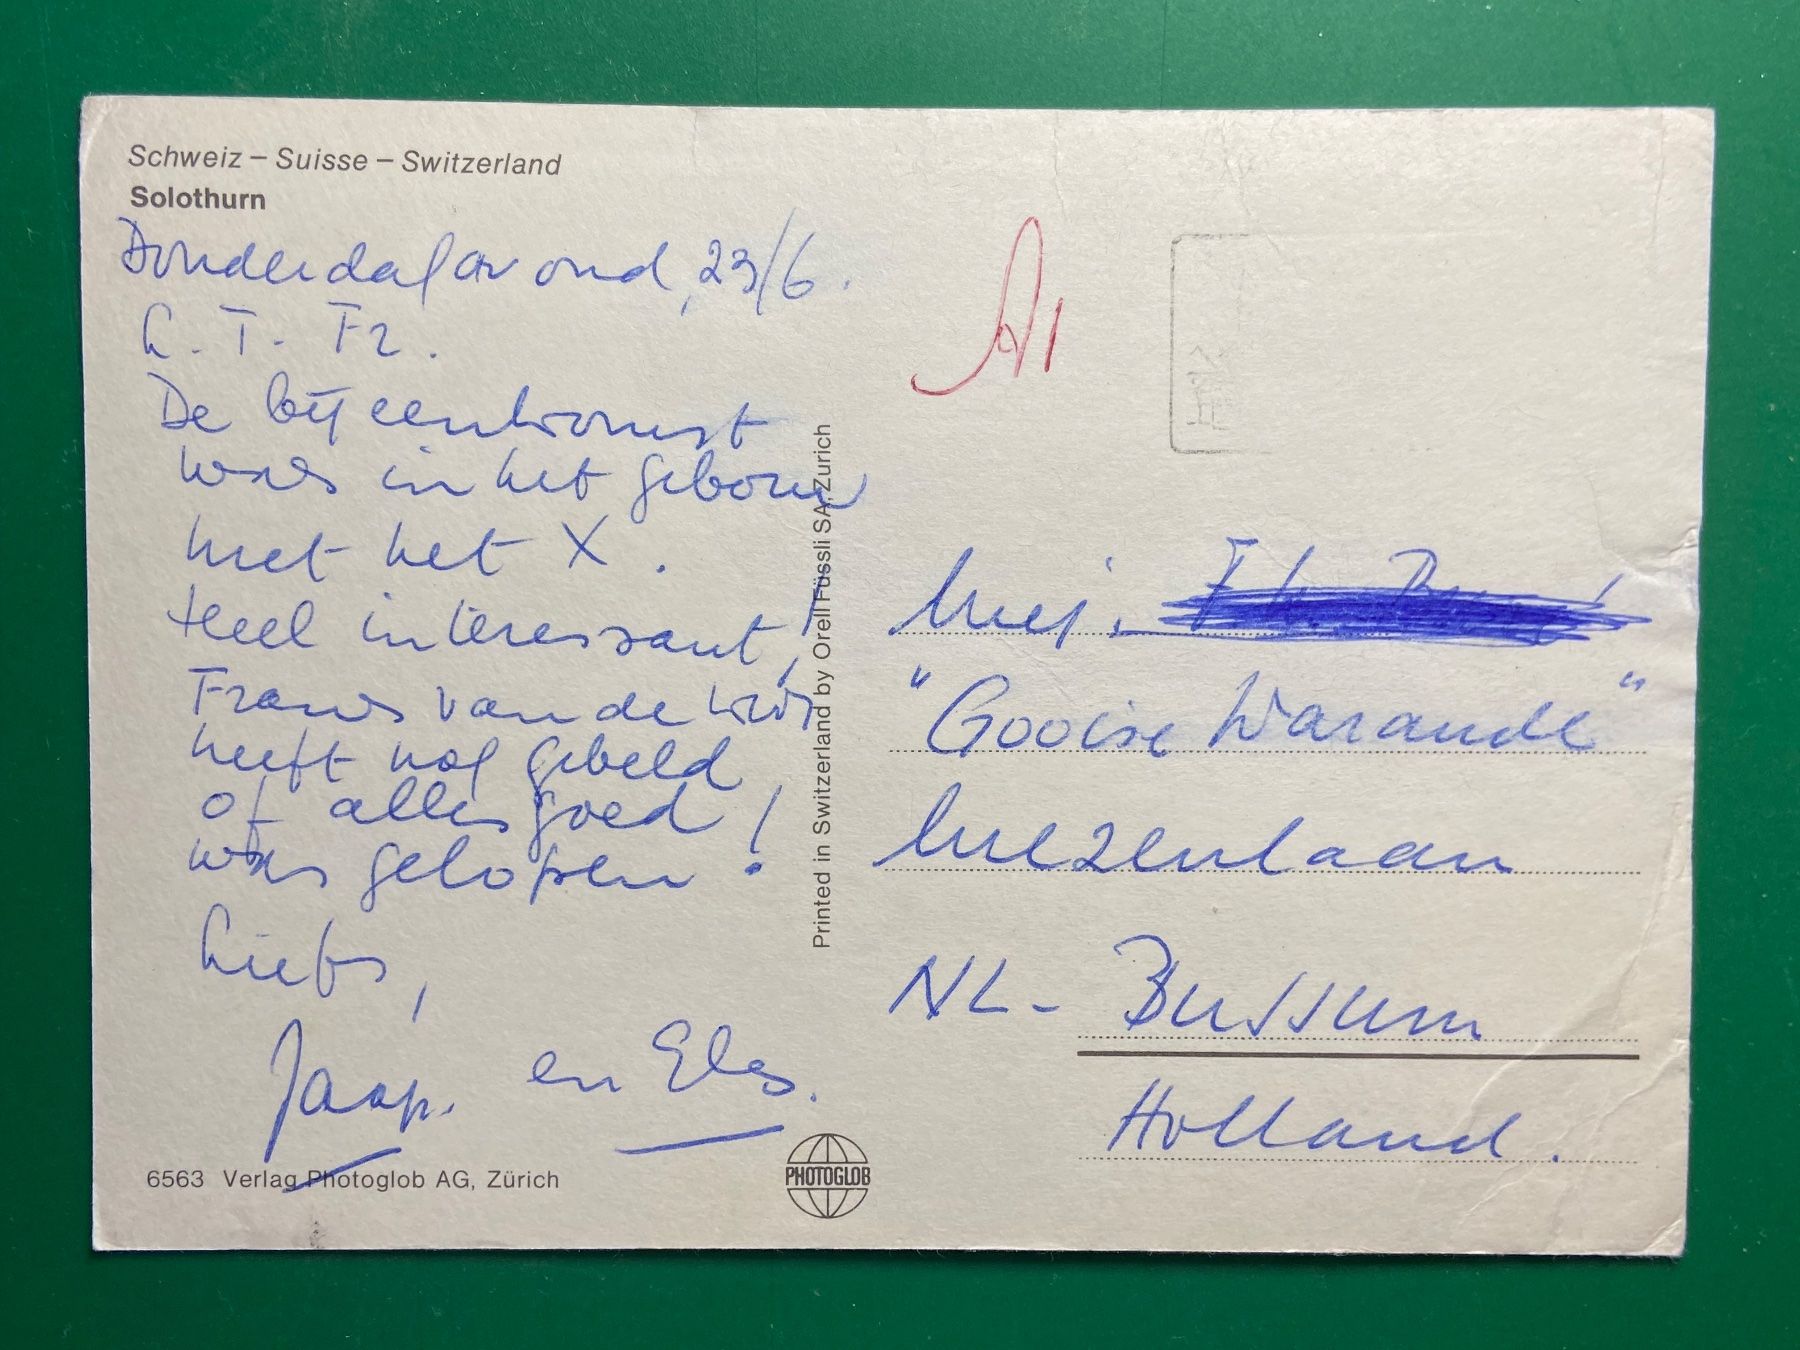 Schweiz – Suisse – Switzerland
Solothurn
Donderdagavond, 23/6.
L. T. Fr.
De bijeenkomst
was in het gebouw
met het X.
Heel interessant!
Frans van de
heeft nog gebeld
of alles goed
was gelopen!
Liefs,
Jaap. en Eles.
6563 Verlag Photoglob AG, Zürich
Printed in Switzerland by Orell Füssli SA, Zurich
PHOTOGLOB
A1
Mej.
"Gooise Warande"
Mezenlaan
NL- Bussum
Holland.